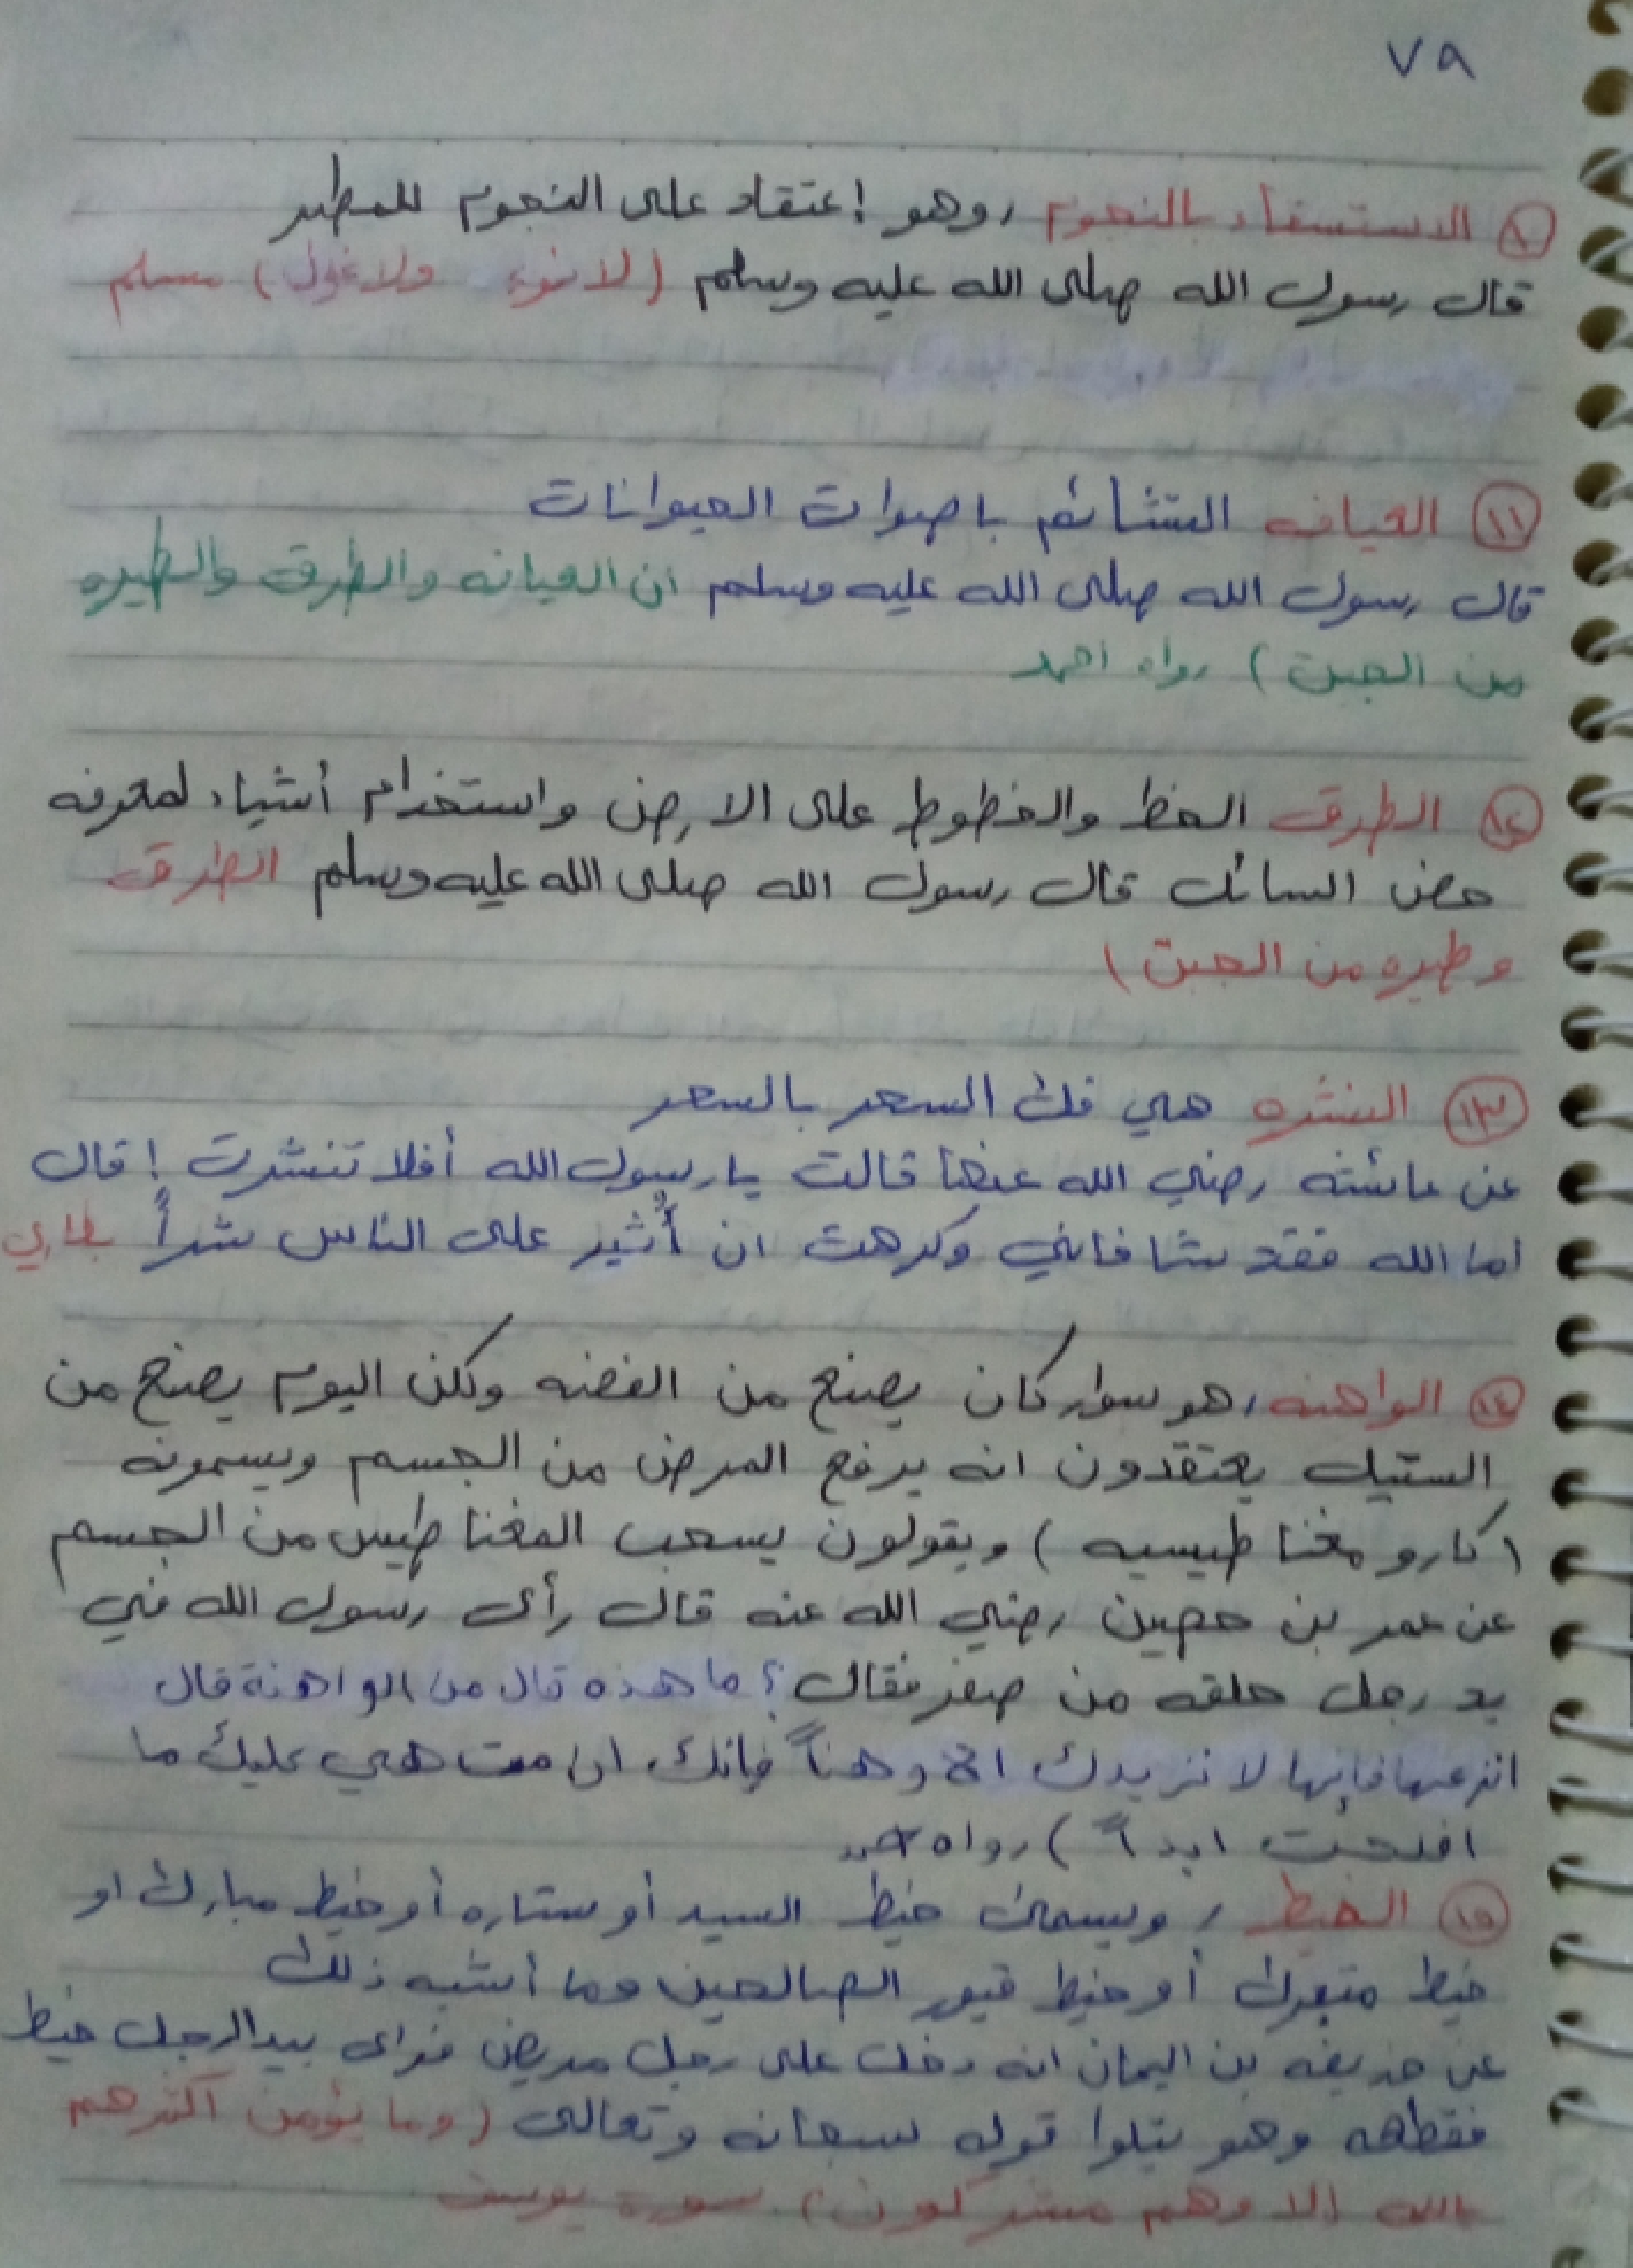 ٧٨
١٠ الاستسقاء بالنجوم، وهو إعتقاد على النجوم للمطر
قال رسول الله صلى الله عليه وسلم (لا نوء ولا غول) مسلم
١١ العيافه التشائم باصوات الحيوانات
قال رسول الله صلى الله عليه وسلم ان العيافه والطرق والطيره
من الجبت) رواه احمد
١٢ الطرق الخط والخطوط على الارض واستخدام أشياء لمعرفه
حض السائل قال رسول الله صلى الله عليه وسلم الطرق
وطيره من الجبت)
١٣ النشره هي فك السحر بالسحر
عن عائشه رضي الله عنها قالت يا رسول الله أفلا تنشرت! قال
اما الله فقد شافاني وكرهت ان أُثير على الناس شراً بخاري
١٤ الواهنه، هو سوار كان يصنع من الفضه ولكن اليوم يصنع من
الستيل يعتقدون انه يرفع المرض من الجسم ويسمونه
(كارو مغناطيسيه) ويقولون يسحب المغناطيس من الجسم
عن عمر بن حصين رضي الله عنه قال رأى رسول الله في
يد رجل حلقه من صفر فقال؟ ما هذه قال من الواهنة قال
انزعها فإنها لا تزيدك الا وهناً فإنك ان مت هي عليك ما
افلحت ابداً) رواه احمد
١٥ الخيط، ويسمى خيط السيد أو ستاره أو خيط مبارك او
خيط متبرك أو خيط قبور الصالحين وما أشبه ذلك
عن حذيفه بن اليمان انه دخل على رجل مريض فرأى بيد الرجل خيط
فقطعه وهو يتلوا قوله سبحانه وتعالى (وما يؤمن اكثرهم
بالله إلا وهم مشركون) سورة يوسف